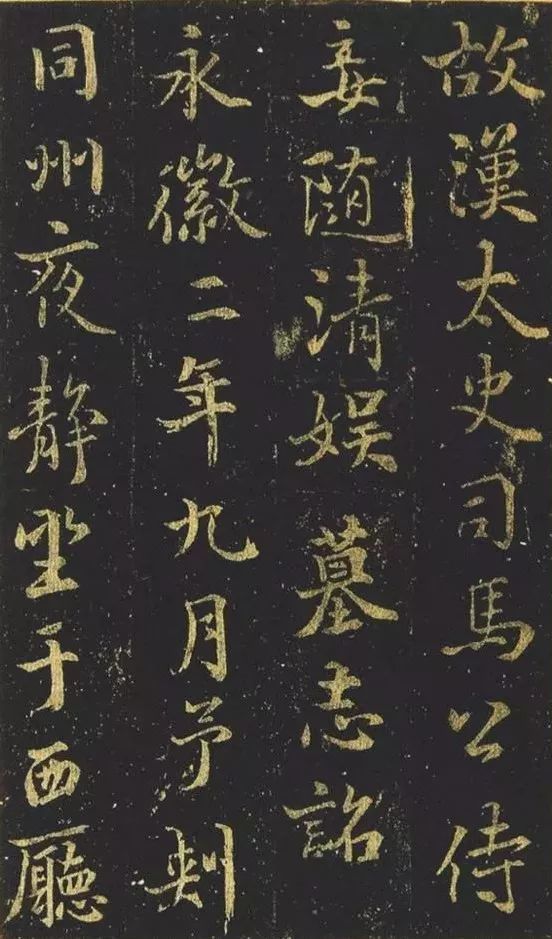 故漢太史司馬公侍
妾隨清娛墓志銘
永徽二年九月予刺
同州夜靜坐于西廳